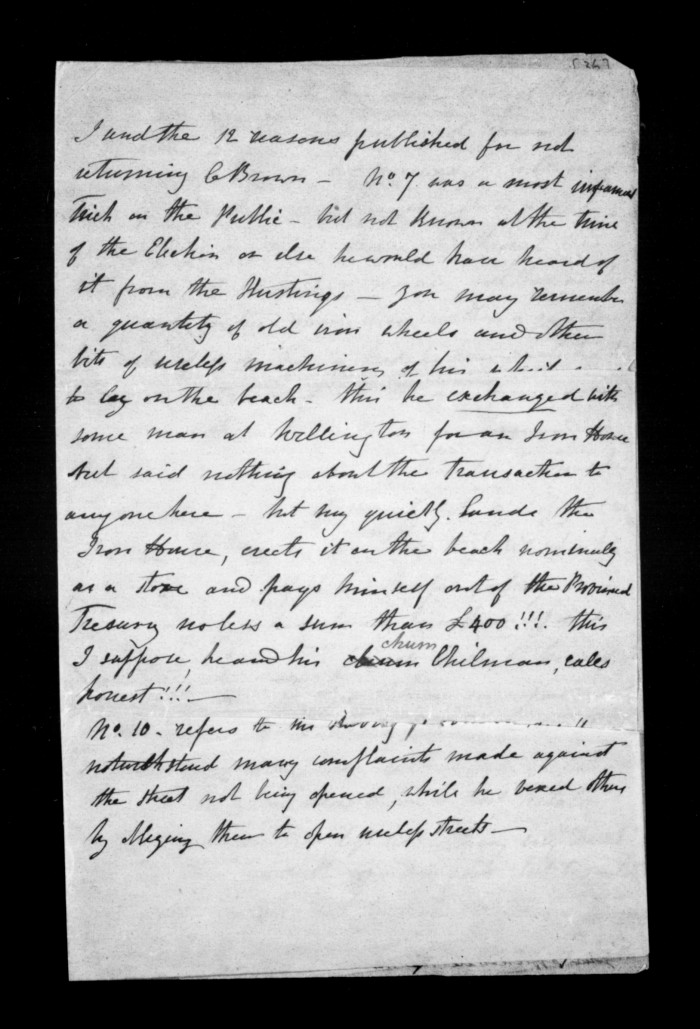 I and the 12 reasons published for not
returning C Brown - No. 7 was a most infamous
Trick on the Public - but not known at the time
of the Election or else he would have heard of
it from the Hustings - you may remember
a quantity of old iron wheels and other
bits of useless machinery of his
to lay on the beach - this he exchanged with
some man at Wellington for an Iron House
but said nothing about the transaction to
anyone here - but very quickly lands the
Iron House, erects it on the beach nominally
as a store and pays himself out of the Provincial
Tresury no less a sum than £400!!!. this
I suppose, he and his chum Chilman, calls
honest!!! -
No. 10 - refers to his
notwithstand many complaints made against
the street not being opened, while he vexed others
by obliging them to open useless streets -